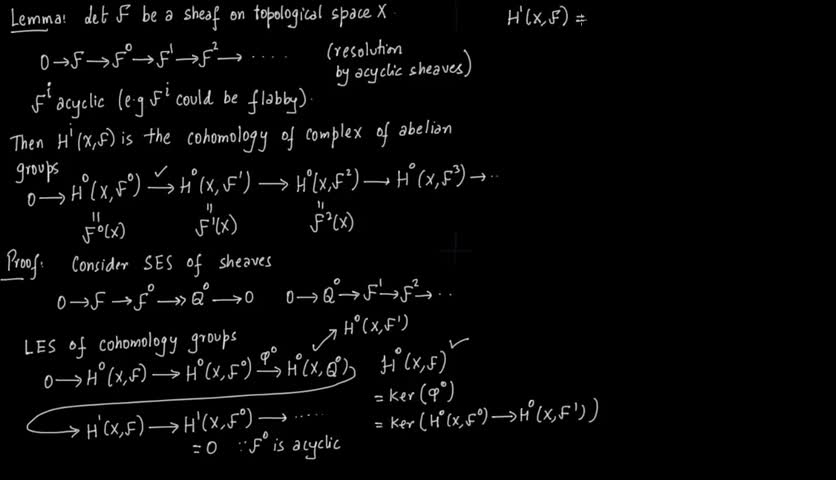 Lemma: Let F be a sheaf on topological space X.
0 → F → F⁰ → F¹ → F² → ····· (resolution by acyclic sheaves)
Fⁱ acyclic (e.g Fⁱ could be flabby).
Then Hⁱ(X,F) is the cohomology of complex of abelian
groups
0 → H⁰(X,F⁰) → H⁰(X,F¹) → H⁰(X,F²) → H⁰(X,F³) → ··
✓
" " "
F⁰(X) F¹(X) F²(X)
Proof: Consider SES of sheaves
0 → F → F⁰ ↠ Q⁰ → 0 0 → Q⁰ → F¹ → F² → ··
LES of cohomology groups
H⁰(X,F¹)
0 → H⁰(X,F) → H⁰(X,F⁰) →φ⁰ H⁰(X,Q⁰)
→ H¹(X,F) → H¹(X,F⁰) → ·····
= 0 ∵ F⁰ is acyclic
H⁰(X,F) ✓
= ker(φ⁰)
= ker(H⁰(X,F⁰) → H⁰(X,F¹))
H¹(X,F) =